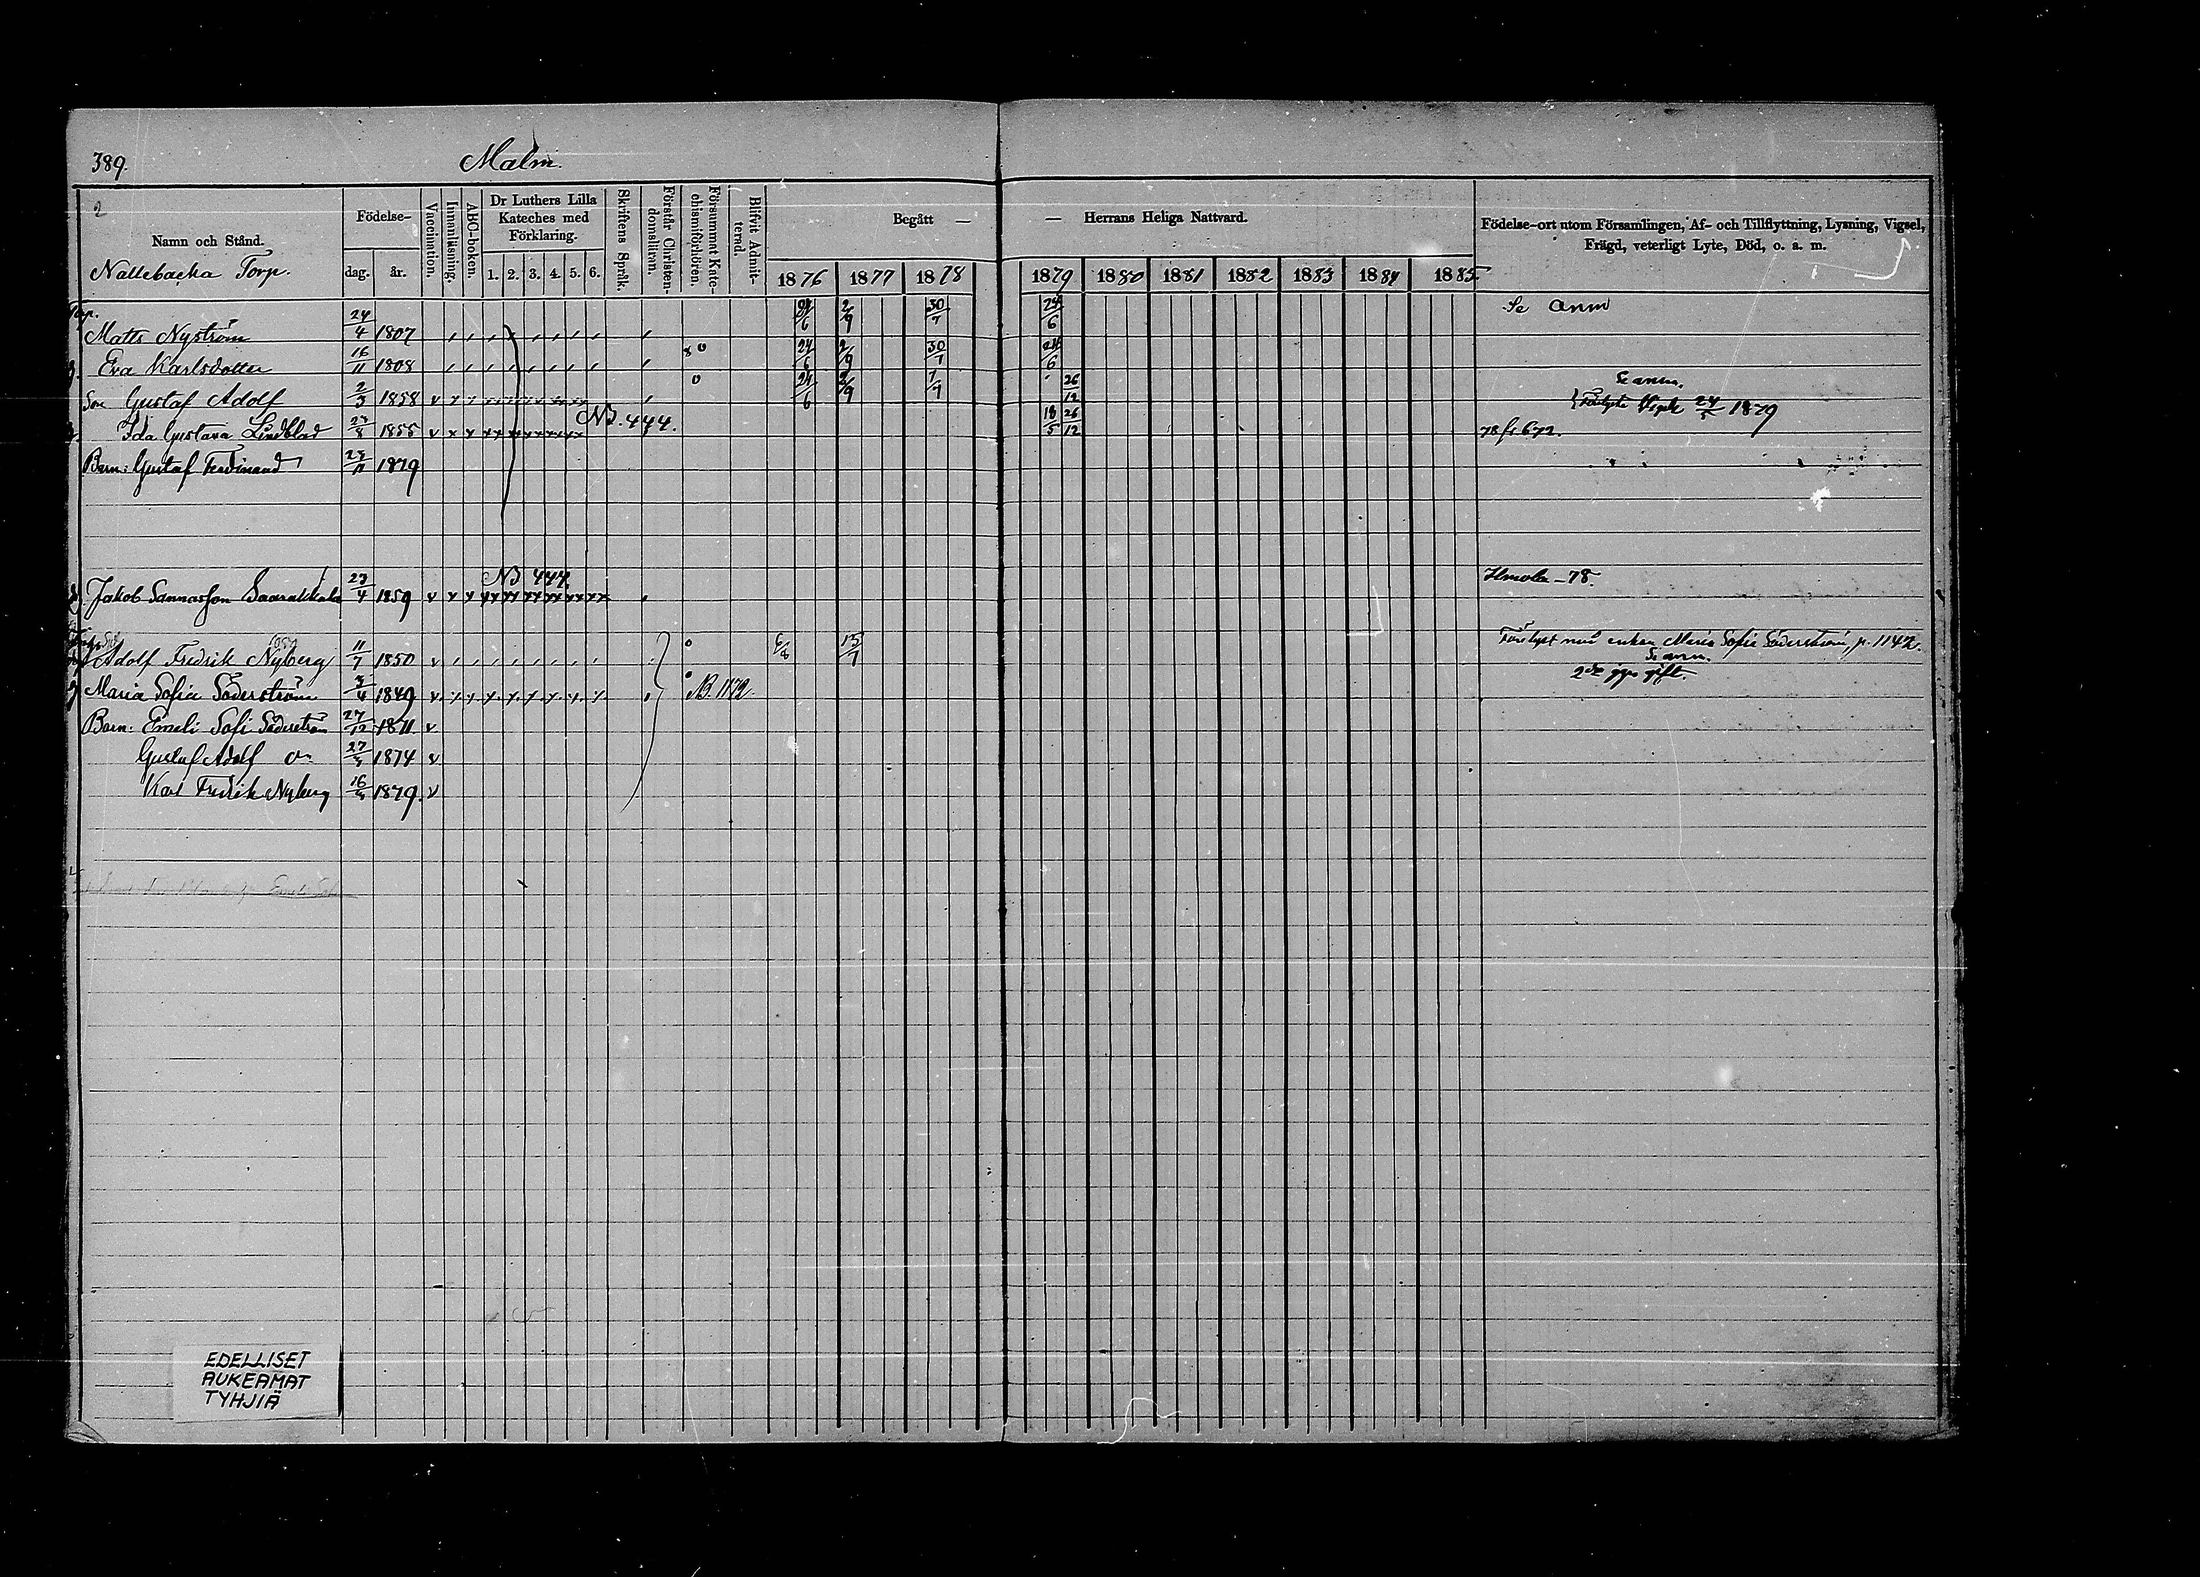 389.
Malm.
2
Namn och Stånd.
Nallebacka Torp.
Födelse-
dag. år.
Vaccination.
Innanläsning.
ABC-boken.
Dr Luthers Lilla
Kateches med
Förklaring.
1. 2. 3. 4. 5. 6.
Skriftens Språk.
Förstår Christen-
domsläran.
Försummat Kate-
chismiförhören.
Blifvit Admit-
terad.
Begått —
1876 1877 1878
— Herrans Heliga Nattvard.
1879 1880 1881 1882 1883 1884 1885
Födelse-ort utom Församlingen, Af- och Tillflyttning, Lysning, Vigsel,
Frägd, veterligt Lyte, Död, o. s. m.
Torp.
Matts Nyström 24/4 1807 24/6 2/9 30/7 24/6 Se anm
Eva Karlsdotter 16/11 1808 24/6 2/9 30/7 24/6
Son Gustaf Adolf 2/3 1858 v 24/6 2/9 7/7 26/12 Se anm.
24/5 1879
Ida Gustava Lindblad 1855 v NB. 444. 18/5 26/12 78 fr 672.
Barn: Gustaf Ferdinand 1879
NB 444.
Jakob Sannasson Saarakkala 23/4 1859 v Ilmola -78.
Adolf Fredrik Nyberg 11/7 1850 v 6/8 15/7 med enkan Maria Sofia Söderström, p. 1142.
Se anm.
Maria Sofia Söderström 3/4 1849 v NB. 1142 2dra ggn gift.
Barn: Emeli Sofi Söderström 27/12 1871 v
Gustaf Adolf 1874 v
Karl Fredrik Nyberg 1879. v
EDELLISET
AUKEAMAT
TYHJIÄ